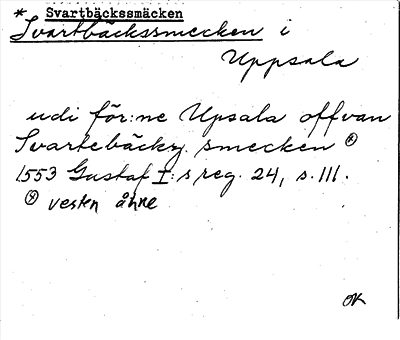 * Svartbäckssmäcken
Svartbäckssmecken i
Uppsala
udi för:ne Upsala offvan
Svartebäckz smecken *
1553 Gustaf I:s reg. 24, s. 111.
* vesten åhne
OK